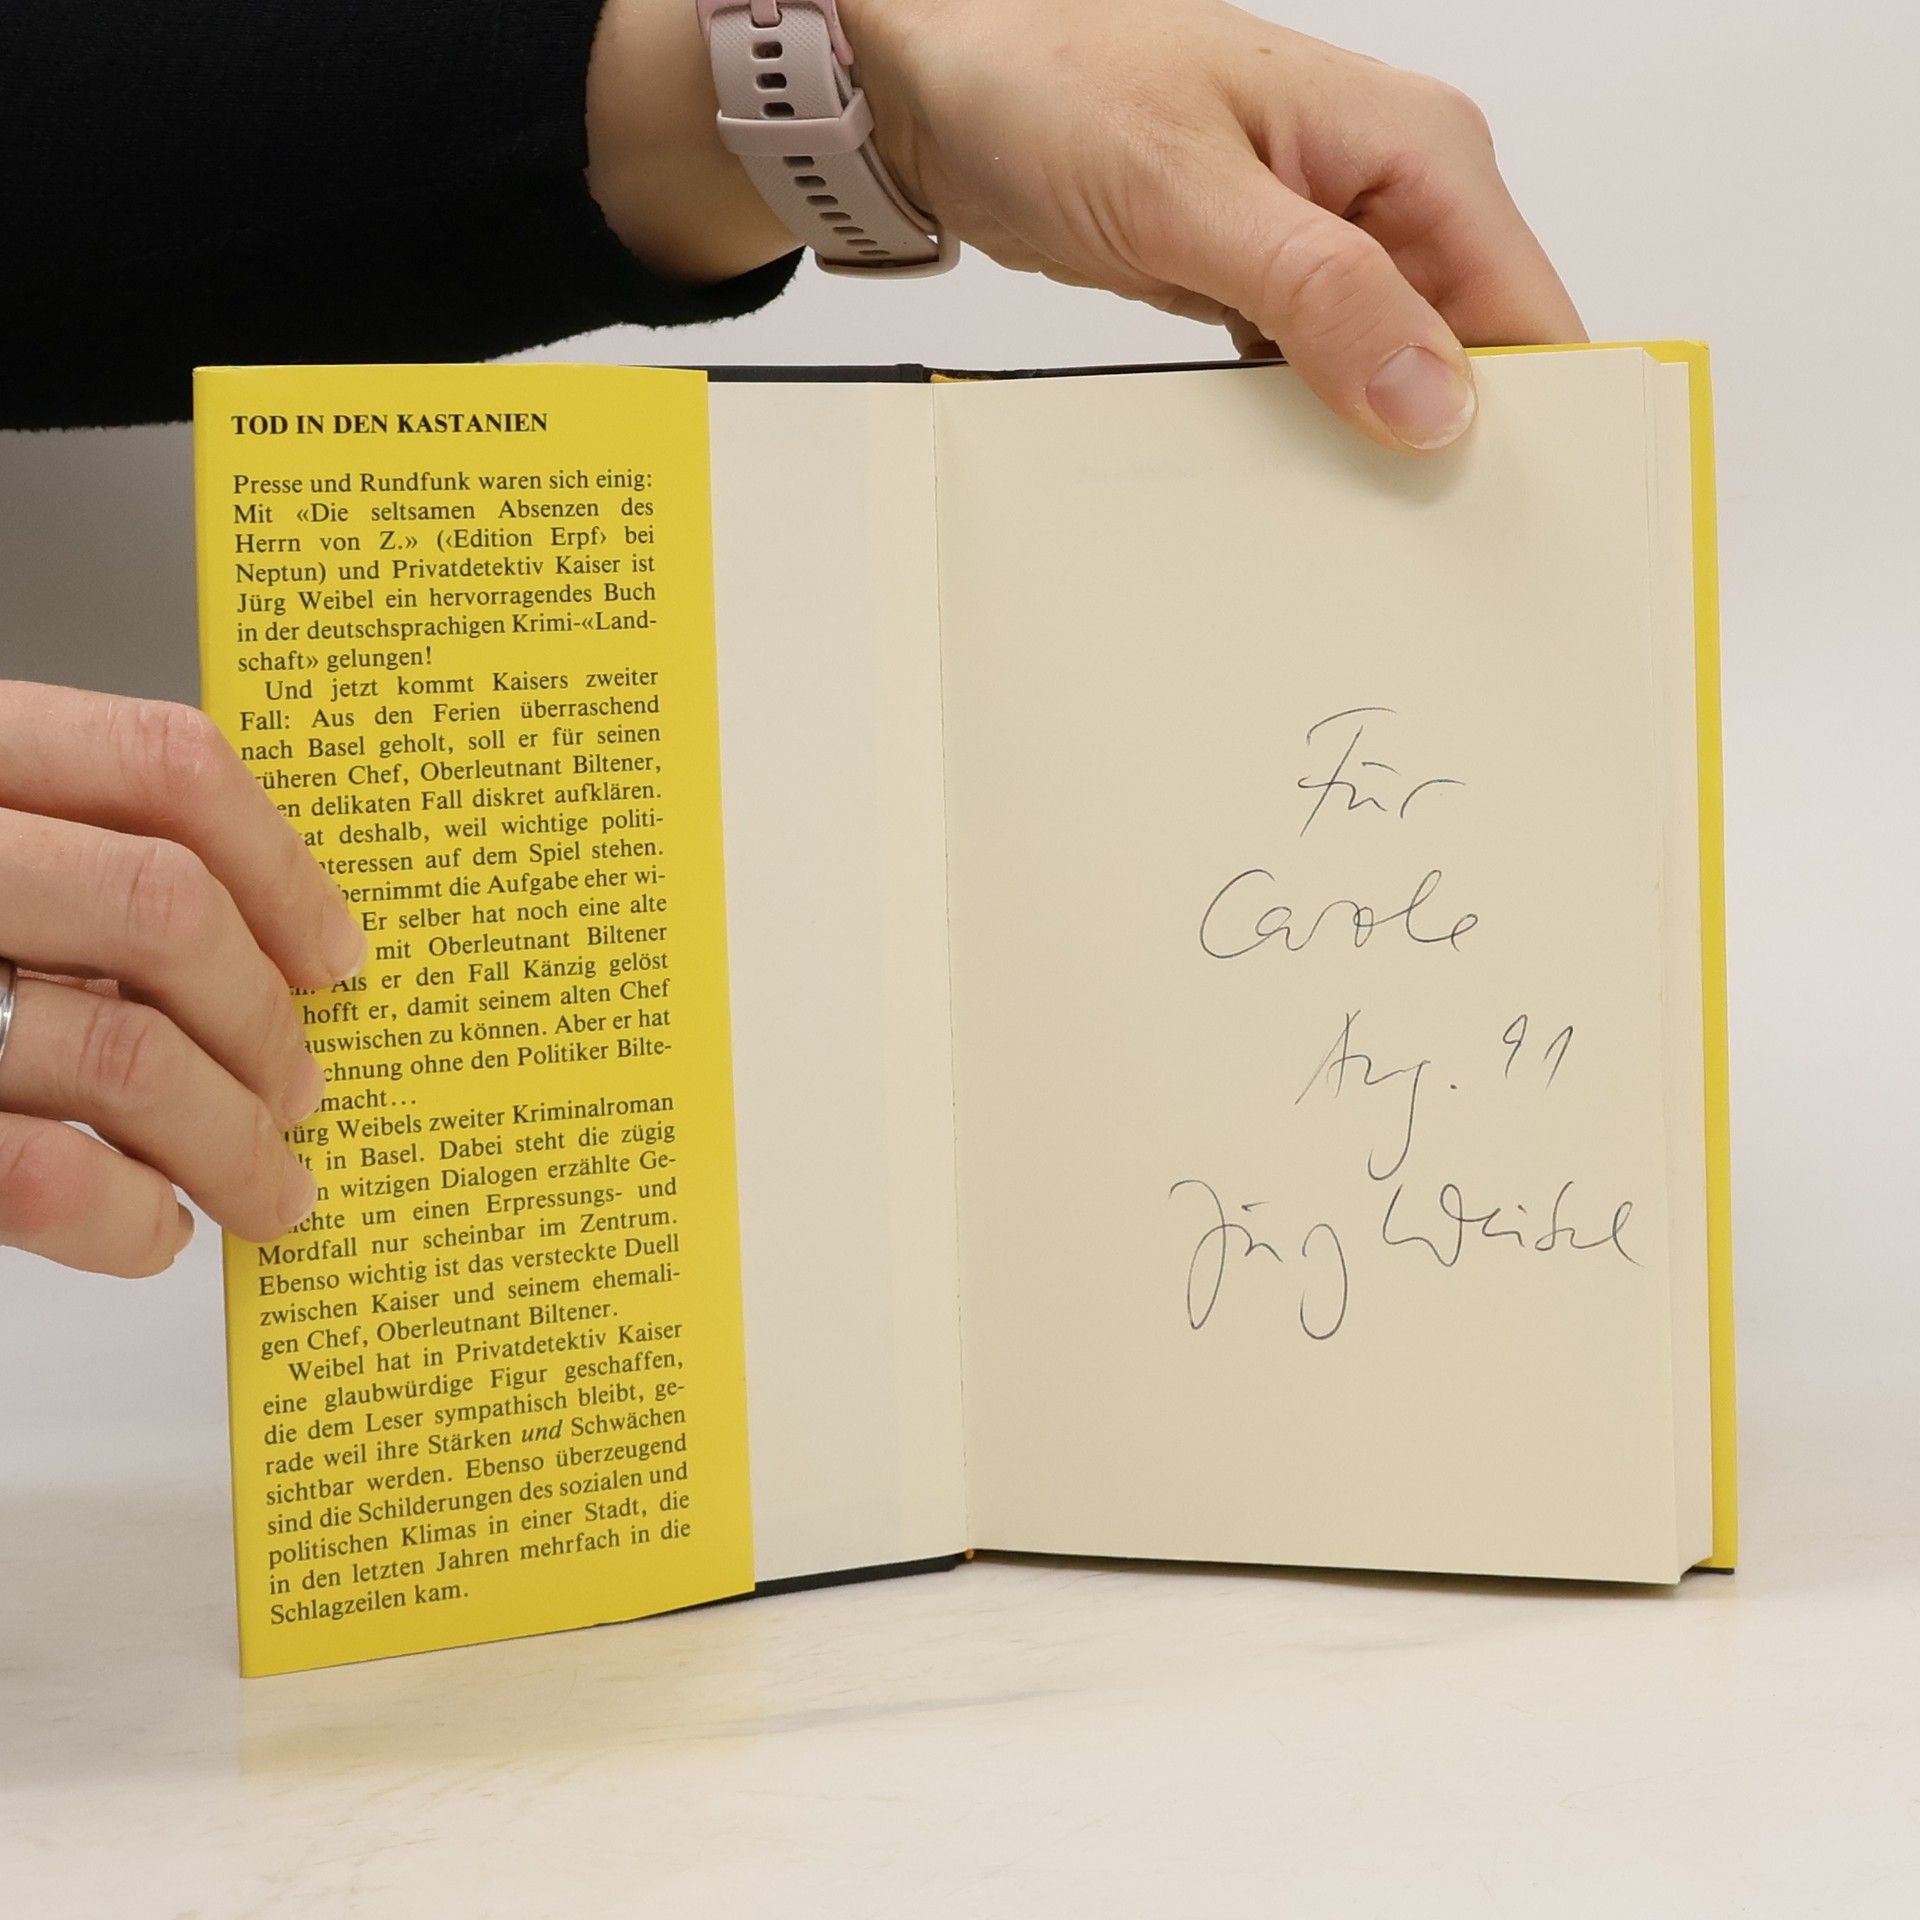 TOD IN DEN KASTANIEN
Presse und Rundfunk waren sich einig:
Mit «Die seltsamen Absenzen des
Herrn von Z.» (‹Edition Erpf› bei
Neptun) und Privatdetektiv Kaiser ist
Jürg Weibel ein hervorragendes Buch
in der deutschsprachigen Krimi-«Land-
schaft» gelungen!
Und jetzt kommt Kaisers zweiter
Fall: Aus den Ferien überraschend
nach Basel geholt, soll er für seinen
rüheren Chef, Oberleutnant Biltener,
en delikaten Fall diskret aufklären.
at deshalb, weil wichtige politi-
nteressen auf dem Spiel stehen.
bernimmt die Aufgabe eher wi-
Er selber hat noch eine alte
mit Oberleutnant Biltener
n. Als er den Fall Känzig gelöst
hofft er, damit seinem alten Chef
auswischen zu können. Aber er hat
chnung ohne den Politiker Bilte-
macht...
Jürg Weibels zweiter Kriminalroman
lt in Basel. Dabei steht die zügig
n witzigen Dialogen erzählte Ge-
ichte um einen Erpressungs- und
Mordfall nur scheinbar im Zentrum.
Ebenso wichtig ist das versteckte Duell
zwischen Kaiser und seinem ehemali-
gen Chef, Oberleutnant Biltener.
Weibel hat in Privatdetektiv Kaiser
eine glaubwürdige Figur geschaffen,
die dem Leser sympathisch bleibt, ge-
rade weil ihre Stärken und Schwächen
sichtbar werden. Ebenso überzeugend
sind die Schilderungen des sozialen und
politischen Klimas in einer Stadt, die
in den letzten Jahren mehrfach in die
Schlagzeilen kam.
Für
Carole
Aug. 91
Jürg Weibel